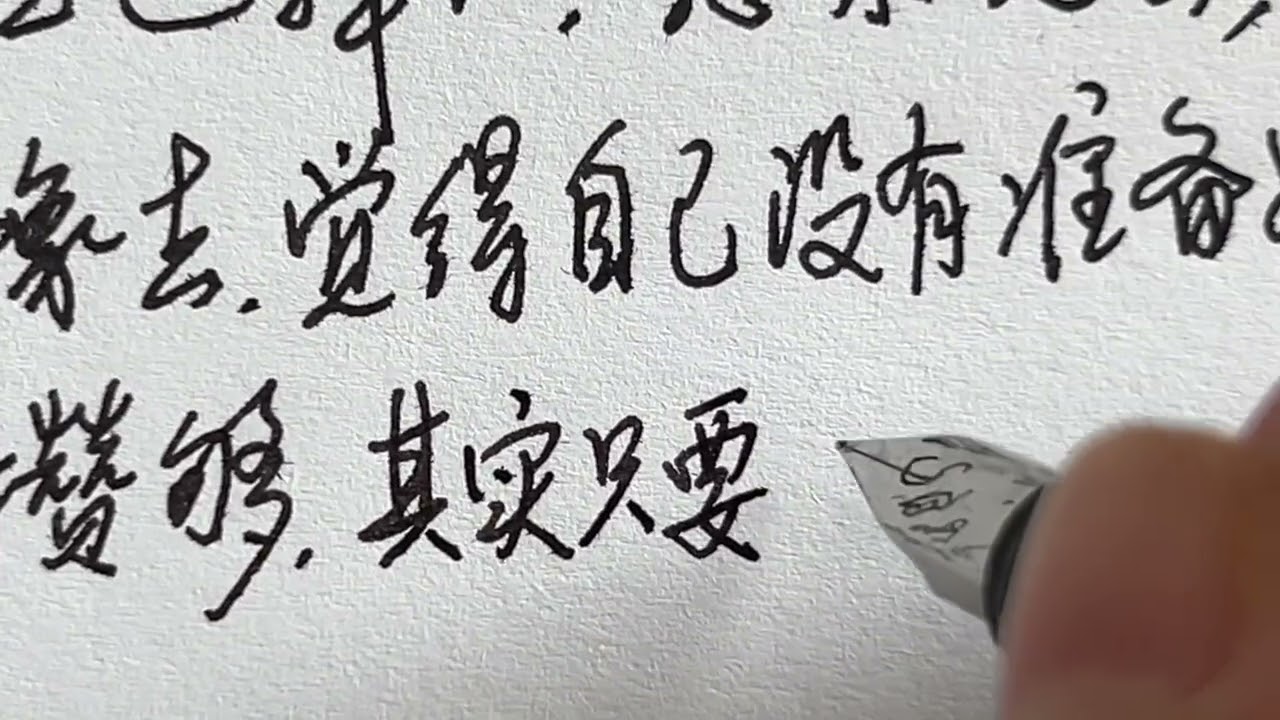 象去.觉得自己没有准备
攒够.其实只要